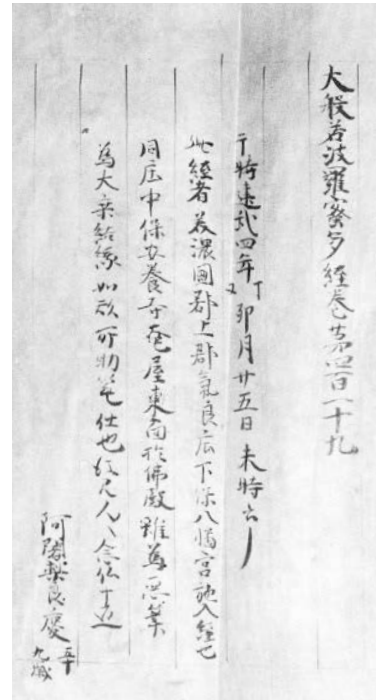 大般若波羅蜜多経巻第四百一十九
于時建武四年丁丑卯月廿五日未時
此経者美濃國郡上郡氣良庄下保八幡宮施入経也
同庄中保安養寺菴屋東向於佛殿雖為悪筆
為大衆結縁如形所物 仕也 人人念仏
阿闍梨良慶
五十
九歳